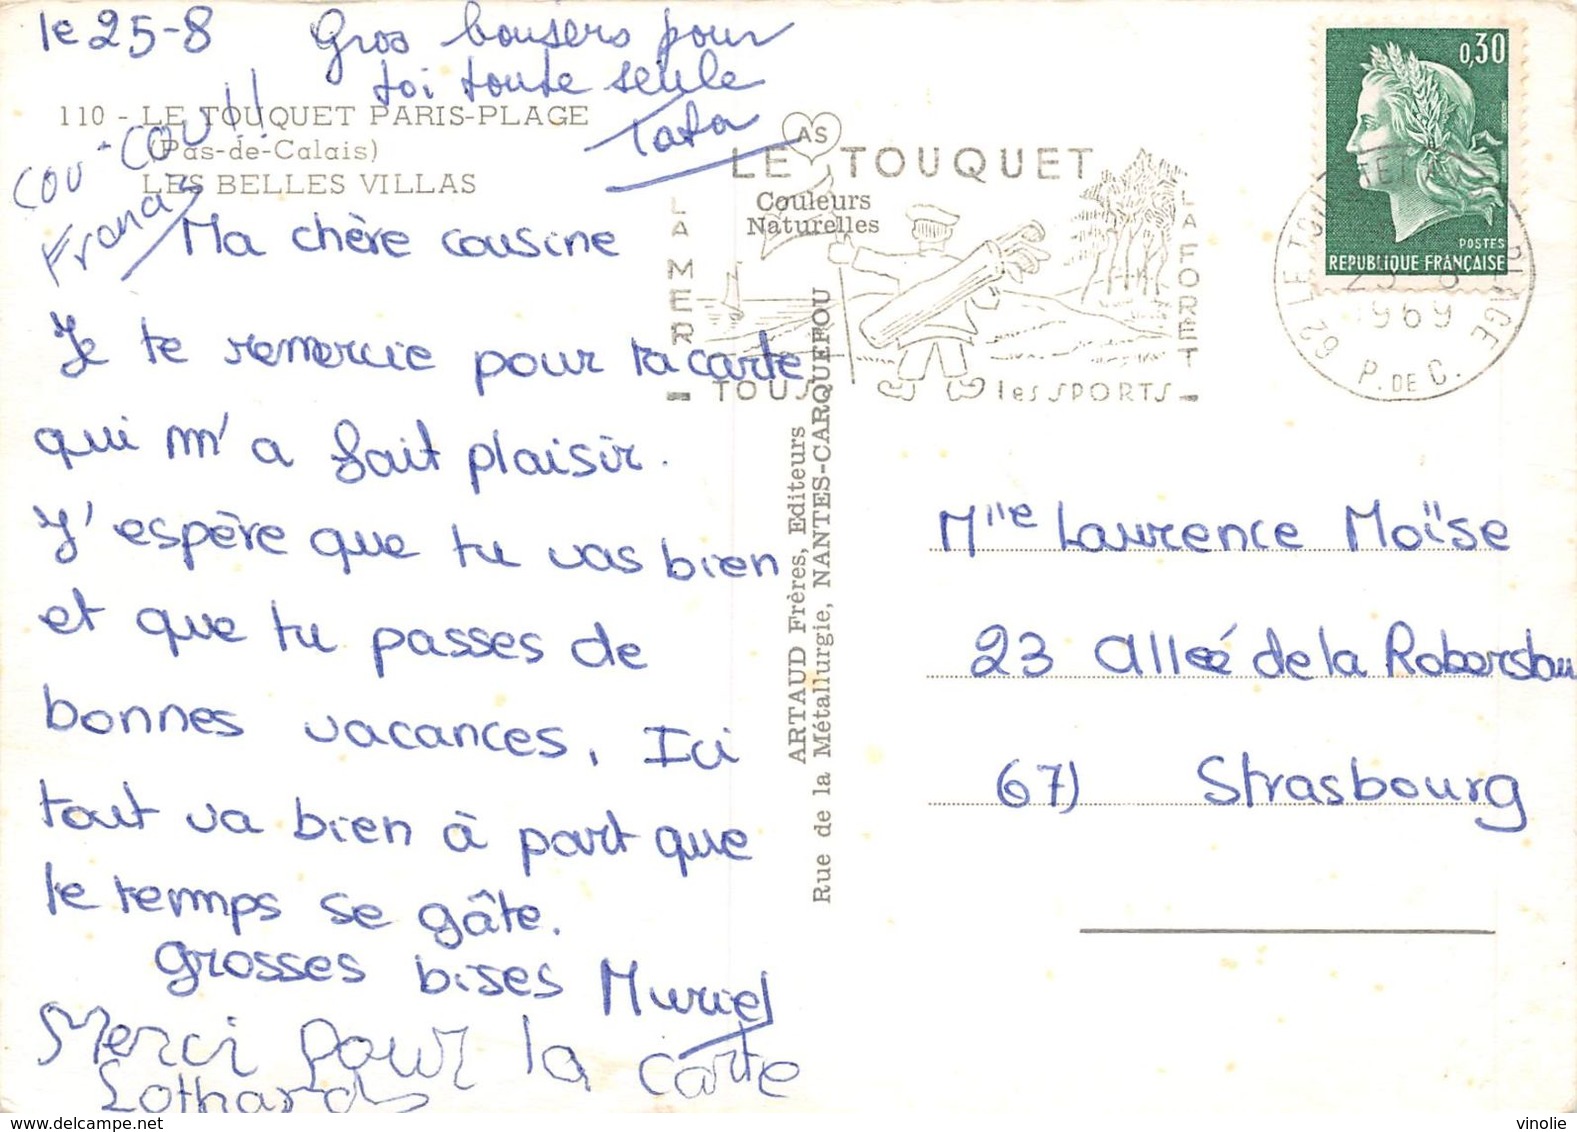 le 25-8
Gros bousers pour
toi toute seule
Tata
110 - LE TOUQUET PARIS-PLAGE
(Pas-de-Calais)
LES BELLES VILLAS
COU-COU!!
Francis
Ma chère cousine
Je te remercie pour ta carte
qui m'a fait plaisir.
J'espère que tu vas bien
et que tu passes de
bonnes vacances, Ici
tout va bien à part que
le temps se gâte.
grosses bises Muriel
Merci pour la carte
Lothard
AS
Couleurs
Naturelles
LE TOUQUET
LA MER
LA FORET
TOUS les SPORTS
ARTAUD Frères, Editeurs
Rue de la Métallurgie, NANTES-CARQUEFOU
0,30
POSTES
REPUBLIQUE FRANÇAISE
62 LE TOUQUET PLAGE
1969
P. DE C.
Mlle Laurence Moïse
23 Allée de la Robertsau
67) Strasbourg
delcampe.net
vinolie